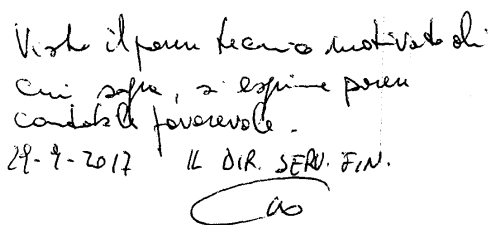 Visto il parere tecnico motivato di
cui sopra, si esprime parere
contabile favorevole.
29-9-2017 IL DIR. SERV. FIN.